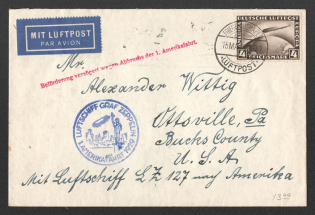 MIT LUFTPOST
PAR AVION
DEUTSCHE LUFTPOST
4 4
REICHSMARK
LUFTPOST
Mr.
Beförderung verzögert wegen Abbruchs der 1. Amerikafahrt.
Alexander Wittig
Ottsville, Pa
Buchs County
U. S. A.
LUFTSCHIFF GRAF ZEPPELIN
1. AMERIKAFAHRT 1929
Mit Luftschiff L Z 127 nach Amerika